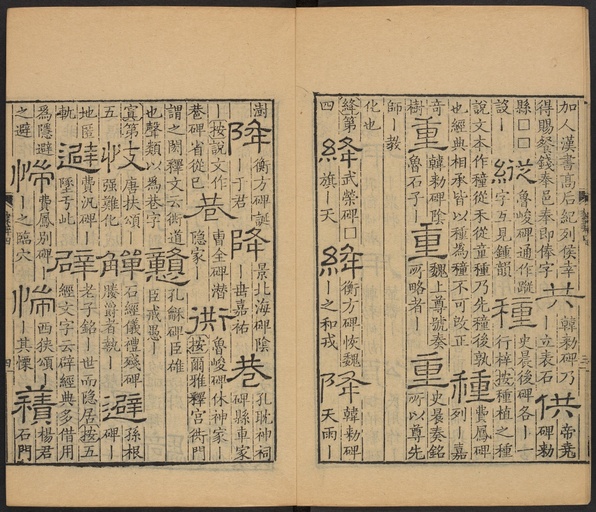 加人漢書高后紀列侯幸 共 韓勅碑乃 供 帝堯
得賜餐錢奉邑奉即俸字 ｜立表石｜ 碑勅
縣囗囗 縱 魯峻碑通作蹤 種 史晨後碑各｜一
設｜ 字互見鍾韻 行梓按種植之種
說文本作穜從禾從童種乃先穜後孰 種 費鳳碑
也經典相承皆以種為穜不可攺正 列｜嘉
奇 重 韓勅碑陰 重 魏上尊號奏 重 史晨奏銘
樹 魯石子｜ 所略者｜ 所以尊先
師｜教
化也
絳第 絳 武榮碑囗 絳 衡方碑恢魏 降 韓勅碑
四 旗｜天 ｜之和戎 天雨｜
澍 降 衡方碑誕 降 景北海碑陰 巷 孔耽神祠
｜于君 ｜毌嘉祐 碑縣車家
｜按說文作 巷 曹全碑潛 衖 魯峻碑休神家｜
巷碑省從巳 隱家｜ 按爾雅釋宮衖門
謂之閎釋文云衖道 戇 孔龢碑臣雄
也聲類以為巷字 臣戒愚｜
寘第 支 唐扶頌｜ 觶 石經儀禮殘碑 避 孫根
五 强難化 ｜媵爵者執｜ 碑｜
地匿 避 費汎碑｜ 辟 老子銘｜世而隱居按五
軌 墜亏此 經文字云辟經典多借用
為隱避 惴 費鳳別碑 惴 西狹頌｜ 積 楊君
之避 ｜之臨穴 ｜其慄 石門